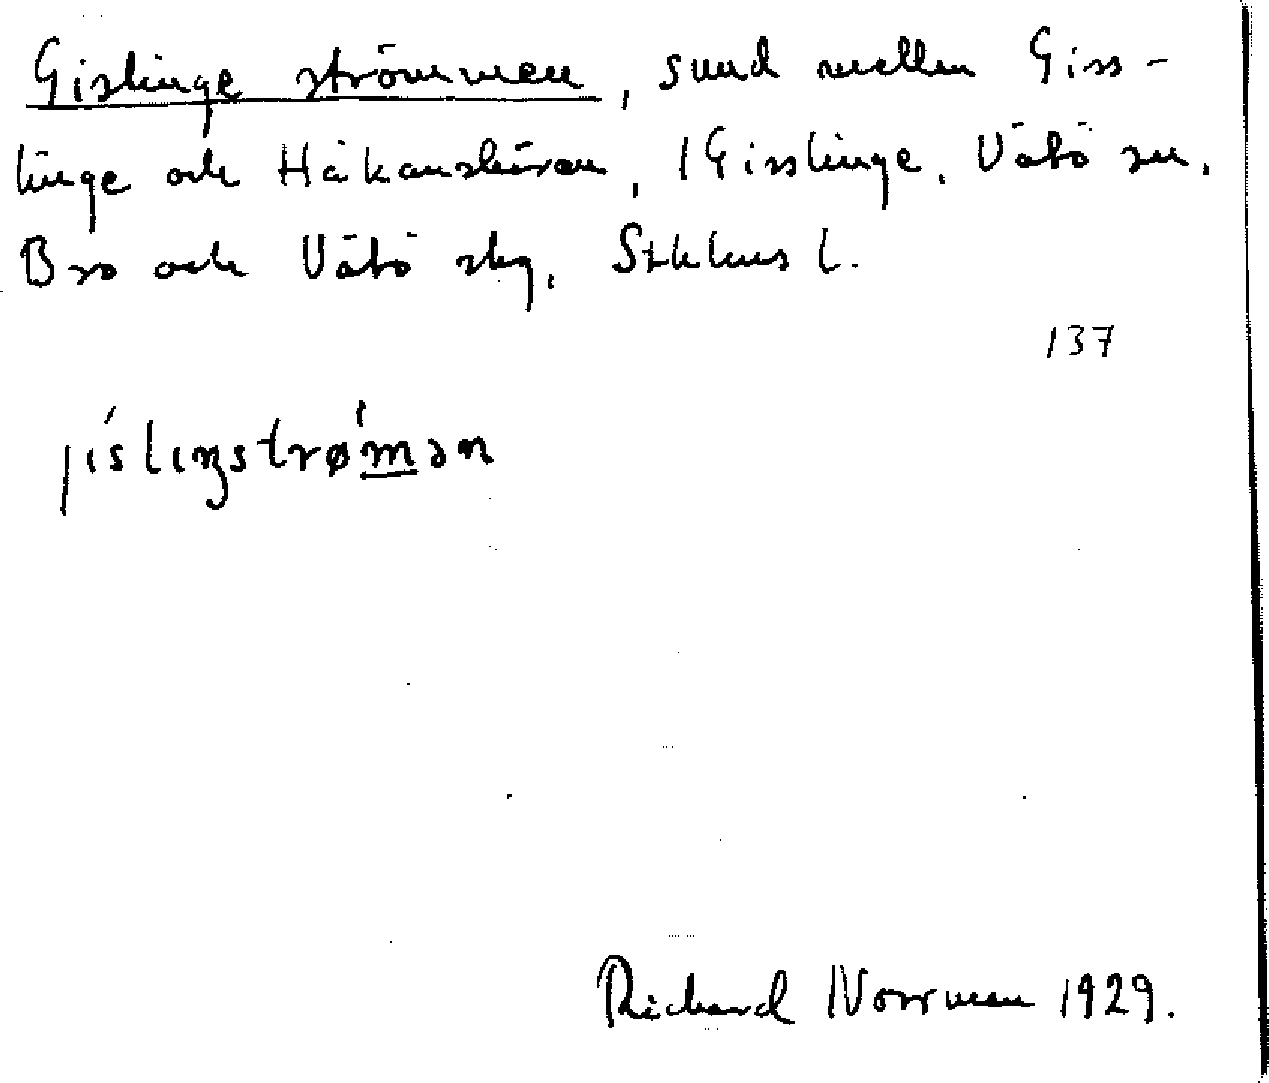 Gislinge strömmen, sund mellan Giss-
linge och Håkansskären, 1 Gisslinge, Vätö sn,
Bro och Vätö skg, Sthlms l.
137
jíslıŋstrø̀mən
Richard Norrman 1929.